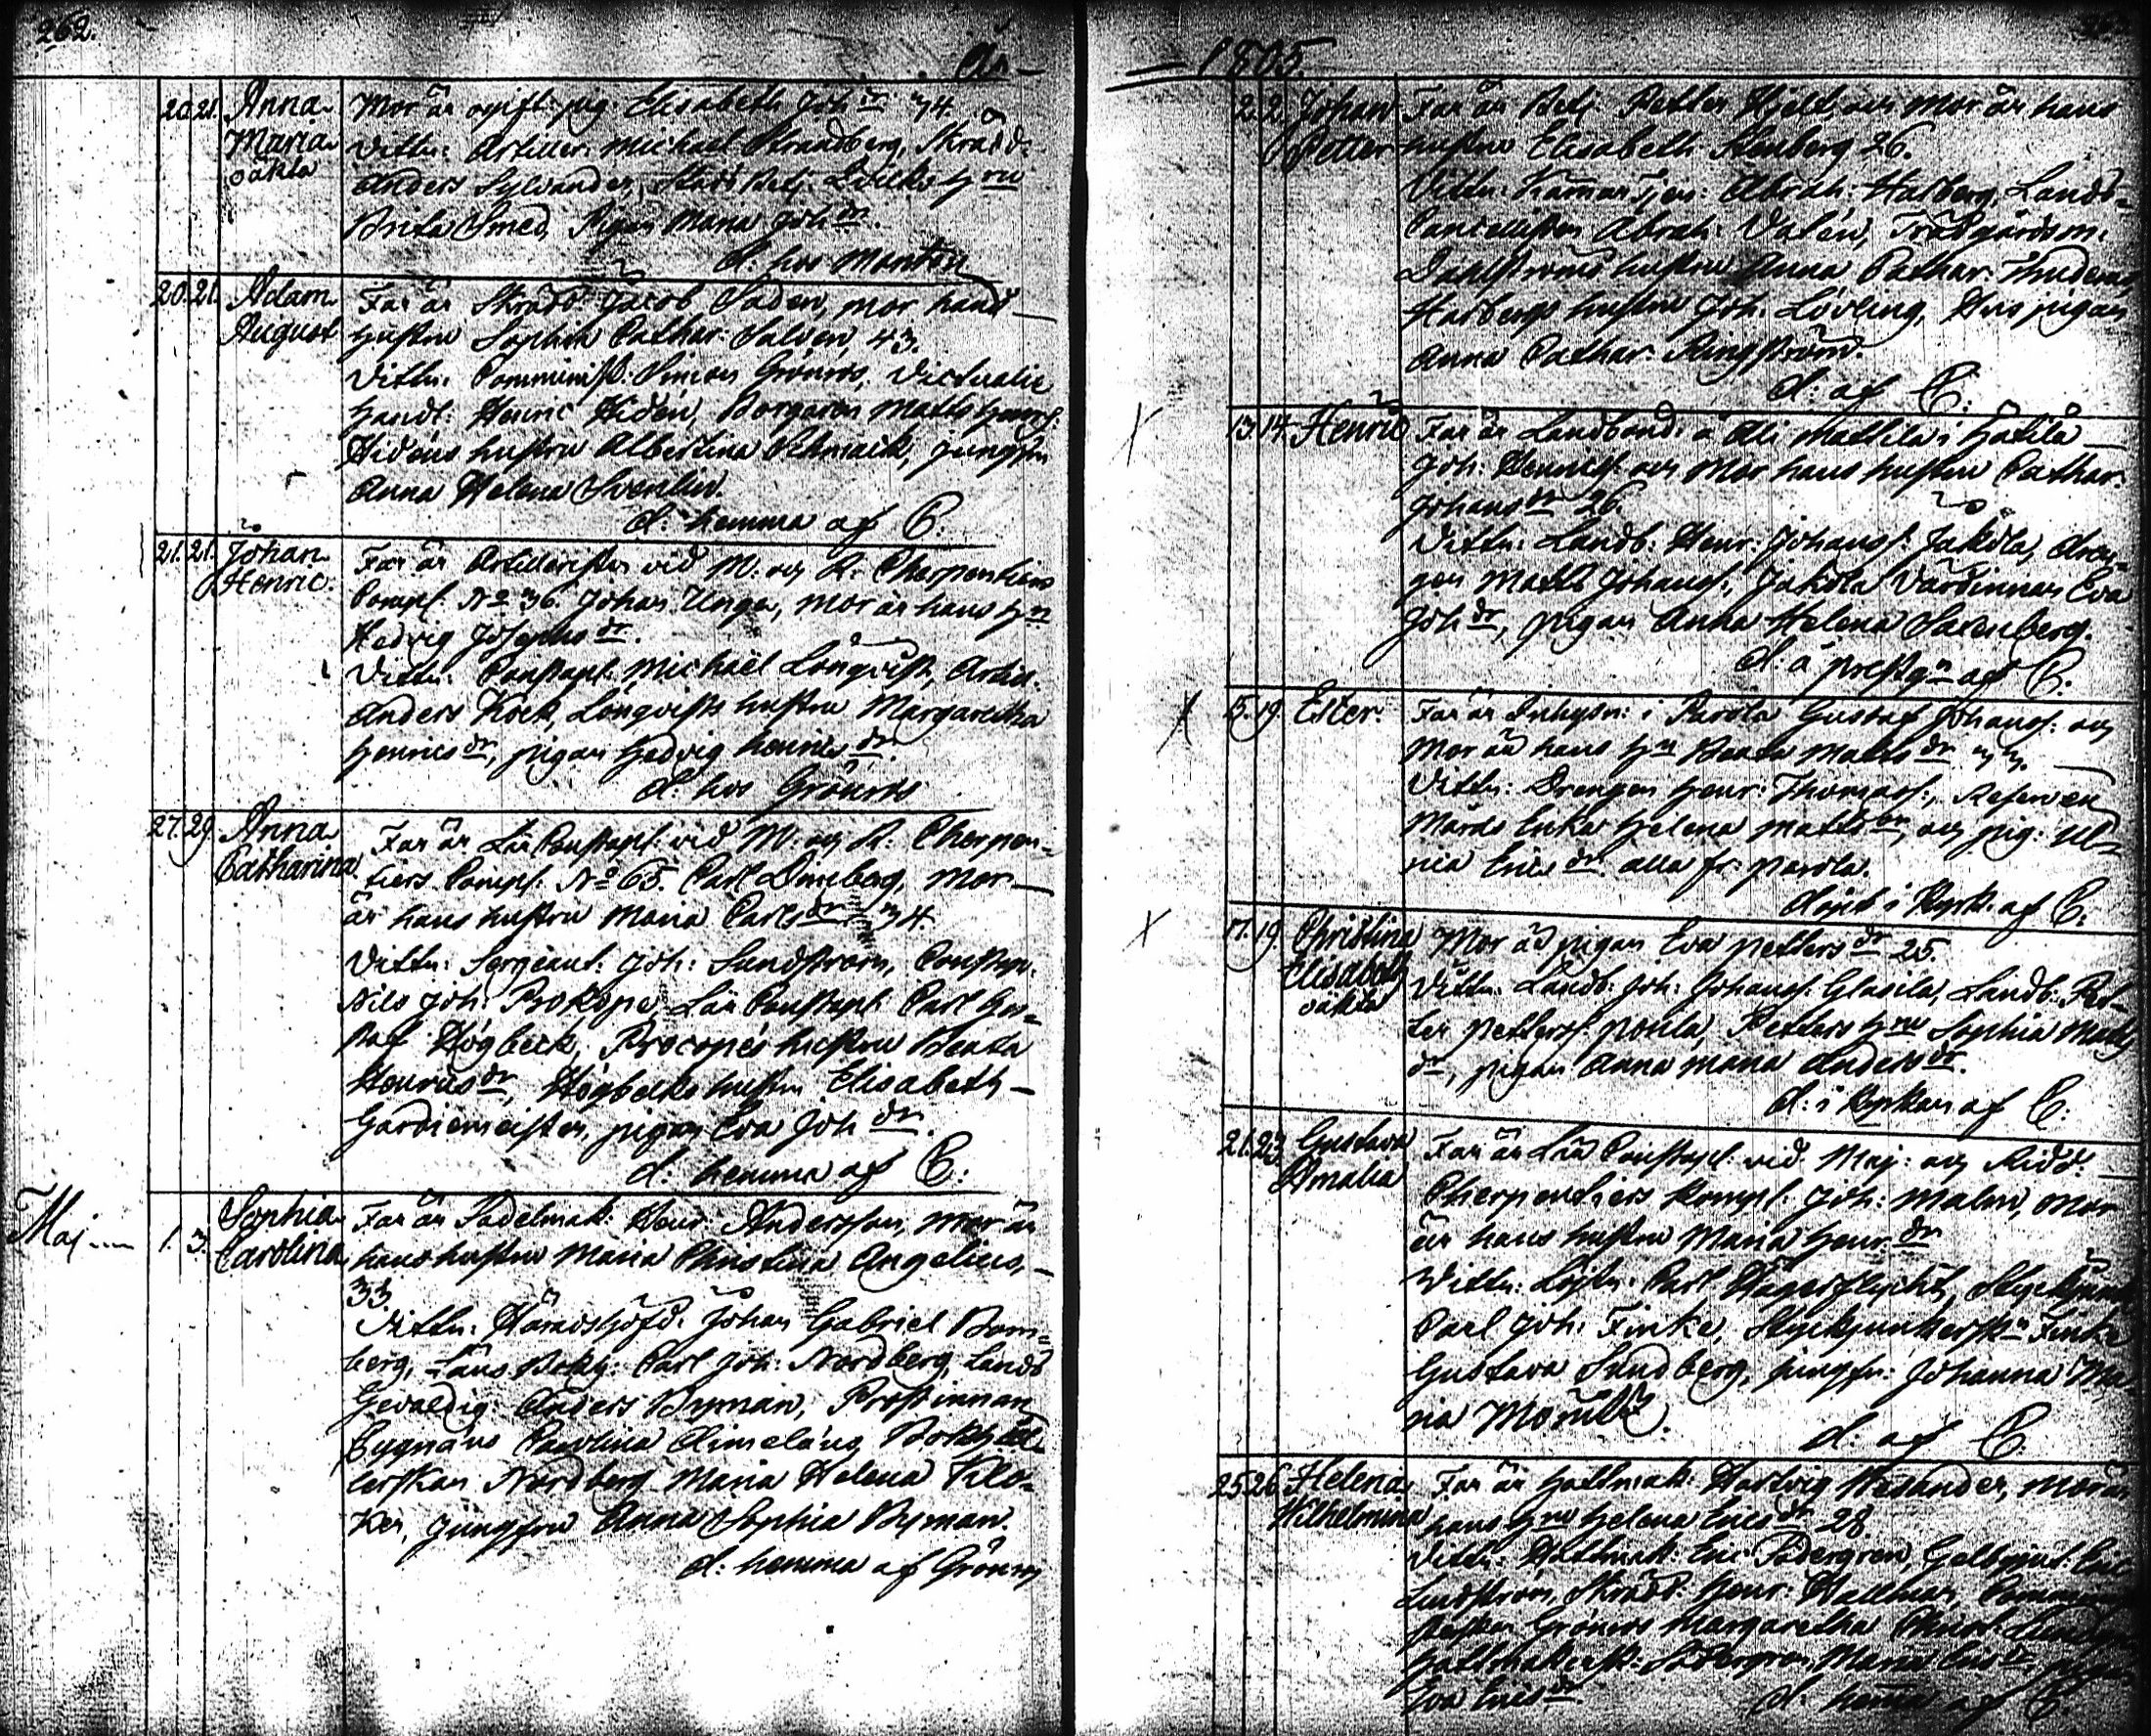 262.
År
20. 21. Anna Maria oäkta
Mor är ogift pig. Elisabeth Joh dr 34.
Vittn: Artiller. Michael Strandberg, Skrädd:
Anders Sylvander, Stads Betj. hru
Brita Smed, Pigan Maria Joh dr.
d: hos Montin
20. 21. Adam August
Far är Skrädd: Jacob Saden, mor hans
hustru Sophia Cathar: Salven, 43.
Vittn: Comminist: Simon Grönros, Victualie
Handl: Henric Hiden, Borgaren Matts Henrs:
Hidens hustru Albertina Schmack, jungfru
Anna Helena Svenlin.
d: hemma af C:
21. 21. Johan Henric.
Far är Artilleristen vid M: och R: Cherpentiers
Compl. No 36. Johan Unger, mor är hans hu
Hedvig Josephs dr.
Vittn: Constapl. Michaël Lönqvist, Artill.
Anders Kock, Lönqvists hustru Margaretha
Henrics dr, pigan Hedvig Henrics dr.
d: hos Grönros
27. 29. Anna Catharina
Far är Lär Constapl. vid M: och R: Cherpen=
tiers Compl. No 65. Carl Duneberg, mor
är hans hustru Maria Carls dr 34.
Vittn: Sergeant: Joh: Sundström, Constap.
Nils Joh: Prokope, Lär Constapl. Carl Gus=
taf Högbeck, Procopés hustru Beata
Henrics dr, Högbecks hustru Elisabeth
Gardiemeister, pigan Eva Joh dr.
d: hemma af C:
Maj 1. 3. Sophia Carolina
Far är Sadelmak: Henr: Andersson, mor är
hans hustru Maria Christina Angelius,
33.
Vittn: Häradshöfd: Johan Gabriel Bom=
berg, Läns Bokh: Carl Joh: Nordberg, Lands
Gevaldig: Anders Byman, Prostinnan
Bygnäus Carolina Aimeläus, Bokhål=
lerskan Nordberg Maria Helena Klo=
ker, jungfru Anna Sophia Byman.
d: hemma af Grönros
1805.
2. 2. Johan Petter
Far är Betj. Petter Hjelt, och mor är hans
hustru Elisabeth Stenberg 26.
Vittn: Kamar Tjen: Abrah: Halberg, Lands
Cancellisten Abrah: Valén, Trädgårdsm:
Dahlströms hustru Anna Cathar:
Halbergs hustru Joh: Löfling, Hus pigan
Anna Cathar. Ringström.
d: af C:
13. 14. Henric
Far är Landbond: å Ali Mattila i Hätilä
Joh: Henrics: och Mor hans hustru Cathar:
Johans dr 26.
Vittn: Landb: Henr: Johans: Jakola, dren=
gen Matts Johans:, Jakola Värdinnan Eva
Joh dr, pigan Anna Helena Saxenberg.
d: å prestgn af C:
5. 19 Ester.
Far är Inhysn: i Parola Gustaf Johans: och
Mor är hans hu Beata Matts dr
Vittn: Drengen Henr: Thomas:, Reserven
Mårds Enka Helena Matts dr, och pig: Ul=
rica Erics dr. alla fr: parola.
döpt i Kyrk: af C:
17. 19. Christina Elisabeth oäkta
Mor är pigan Eva Petters dr 25.
Vittn: Landb: Joh: Johans: Glasila, Landb: Pet=
ter Petters: Pouta, Petters hru Sophia Matts
dr, pigan Anna Maria Anders dr.
d: i kyrkan af C:
21. 23. Gustava Amalia
Far är Lär Constapl: vid Maj: och Ridd:
Cherpentiers Kompl: Joh: Malm, mor
är hans hustru Maria Henr. dr
Vittn: Löjtn: Carl Hägerflycht, Styckjunk
Carl Joh: Finke, Styckjunkersk: Finke
Gustava Sundberg, jungfr: Johanna Ma=
ria
d. af C.
25. 26. Helena Wilhelmina
Far är Hattmak: Hartvig Wesander, mor är
hans hru Helena Erics dr 28
Vittn: Hattmak: Eric Södergren, Gelbgjut:
Lundström, Skrädd: Henr: Hallman,
Grönros Margaretha Christ:
Hattmakersk: Södergren Maria Erics dr, pigan
Eva Erics dr d: hemma af C: